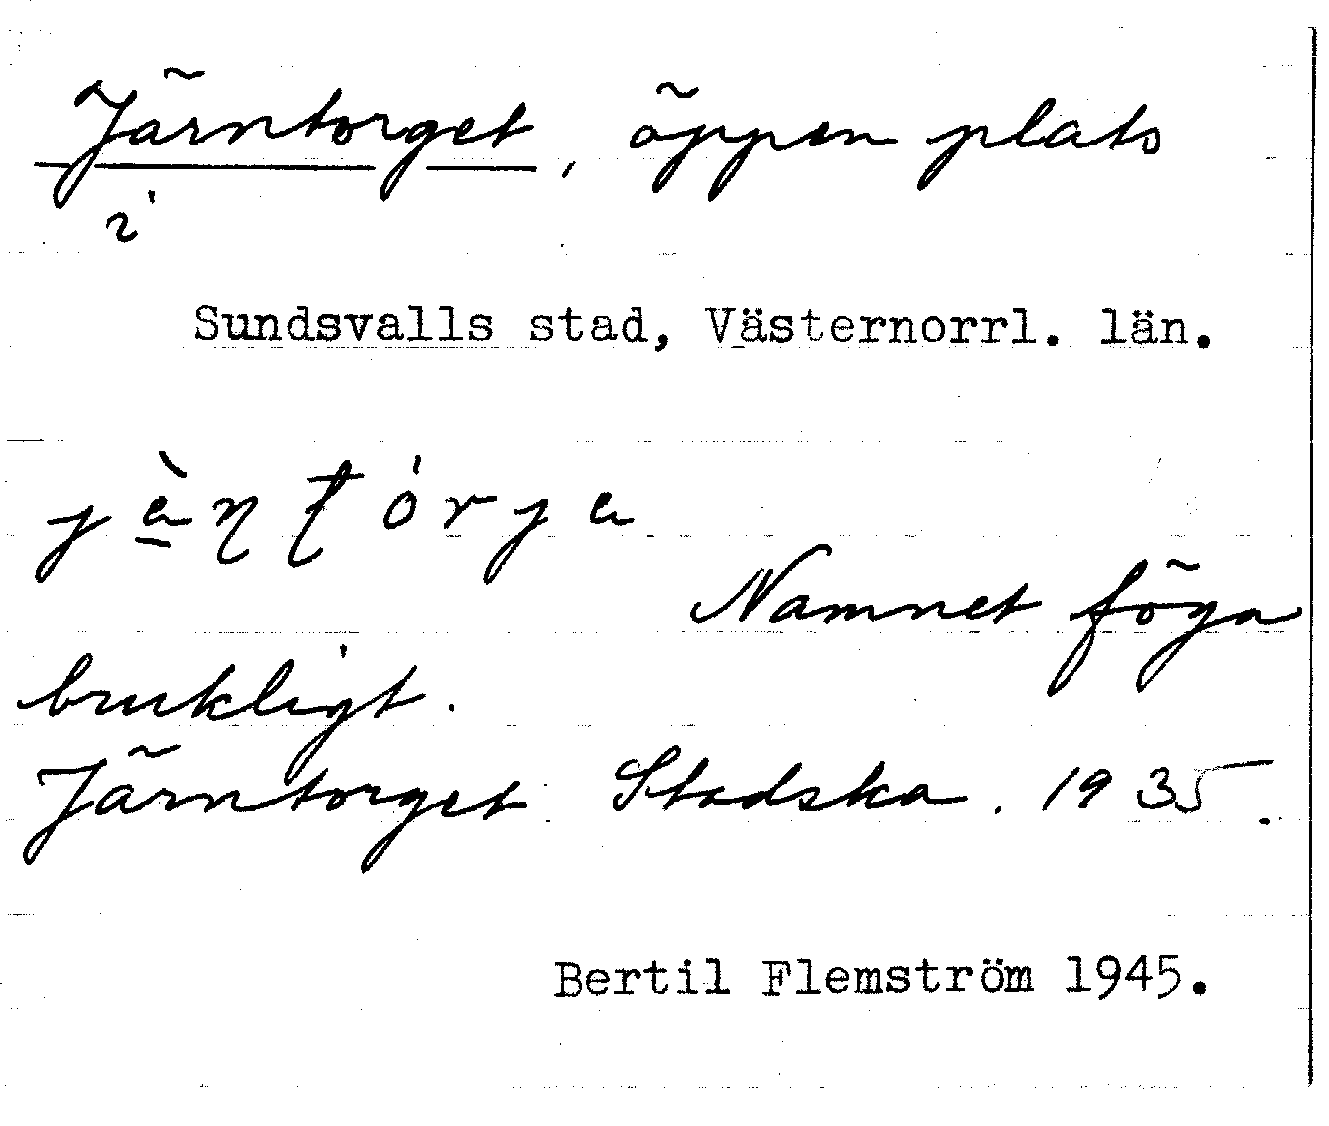 Järntorget, öppen plats
i
Sundsvalls stad, Västernorrl. län.
jèɳʈórja
Namnet föga
brukligt.
Järntorget Stadska. 1935.
Bertil Flemström 1945.